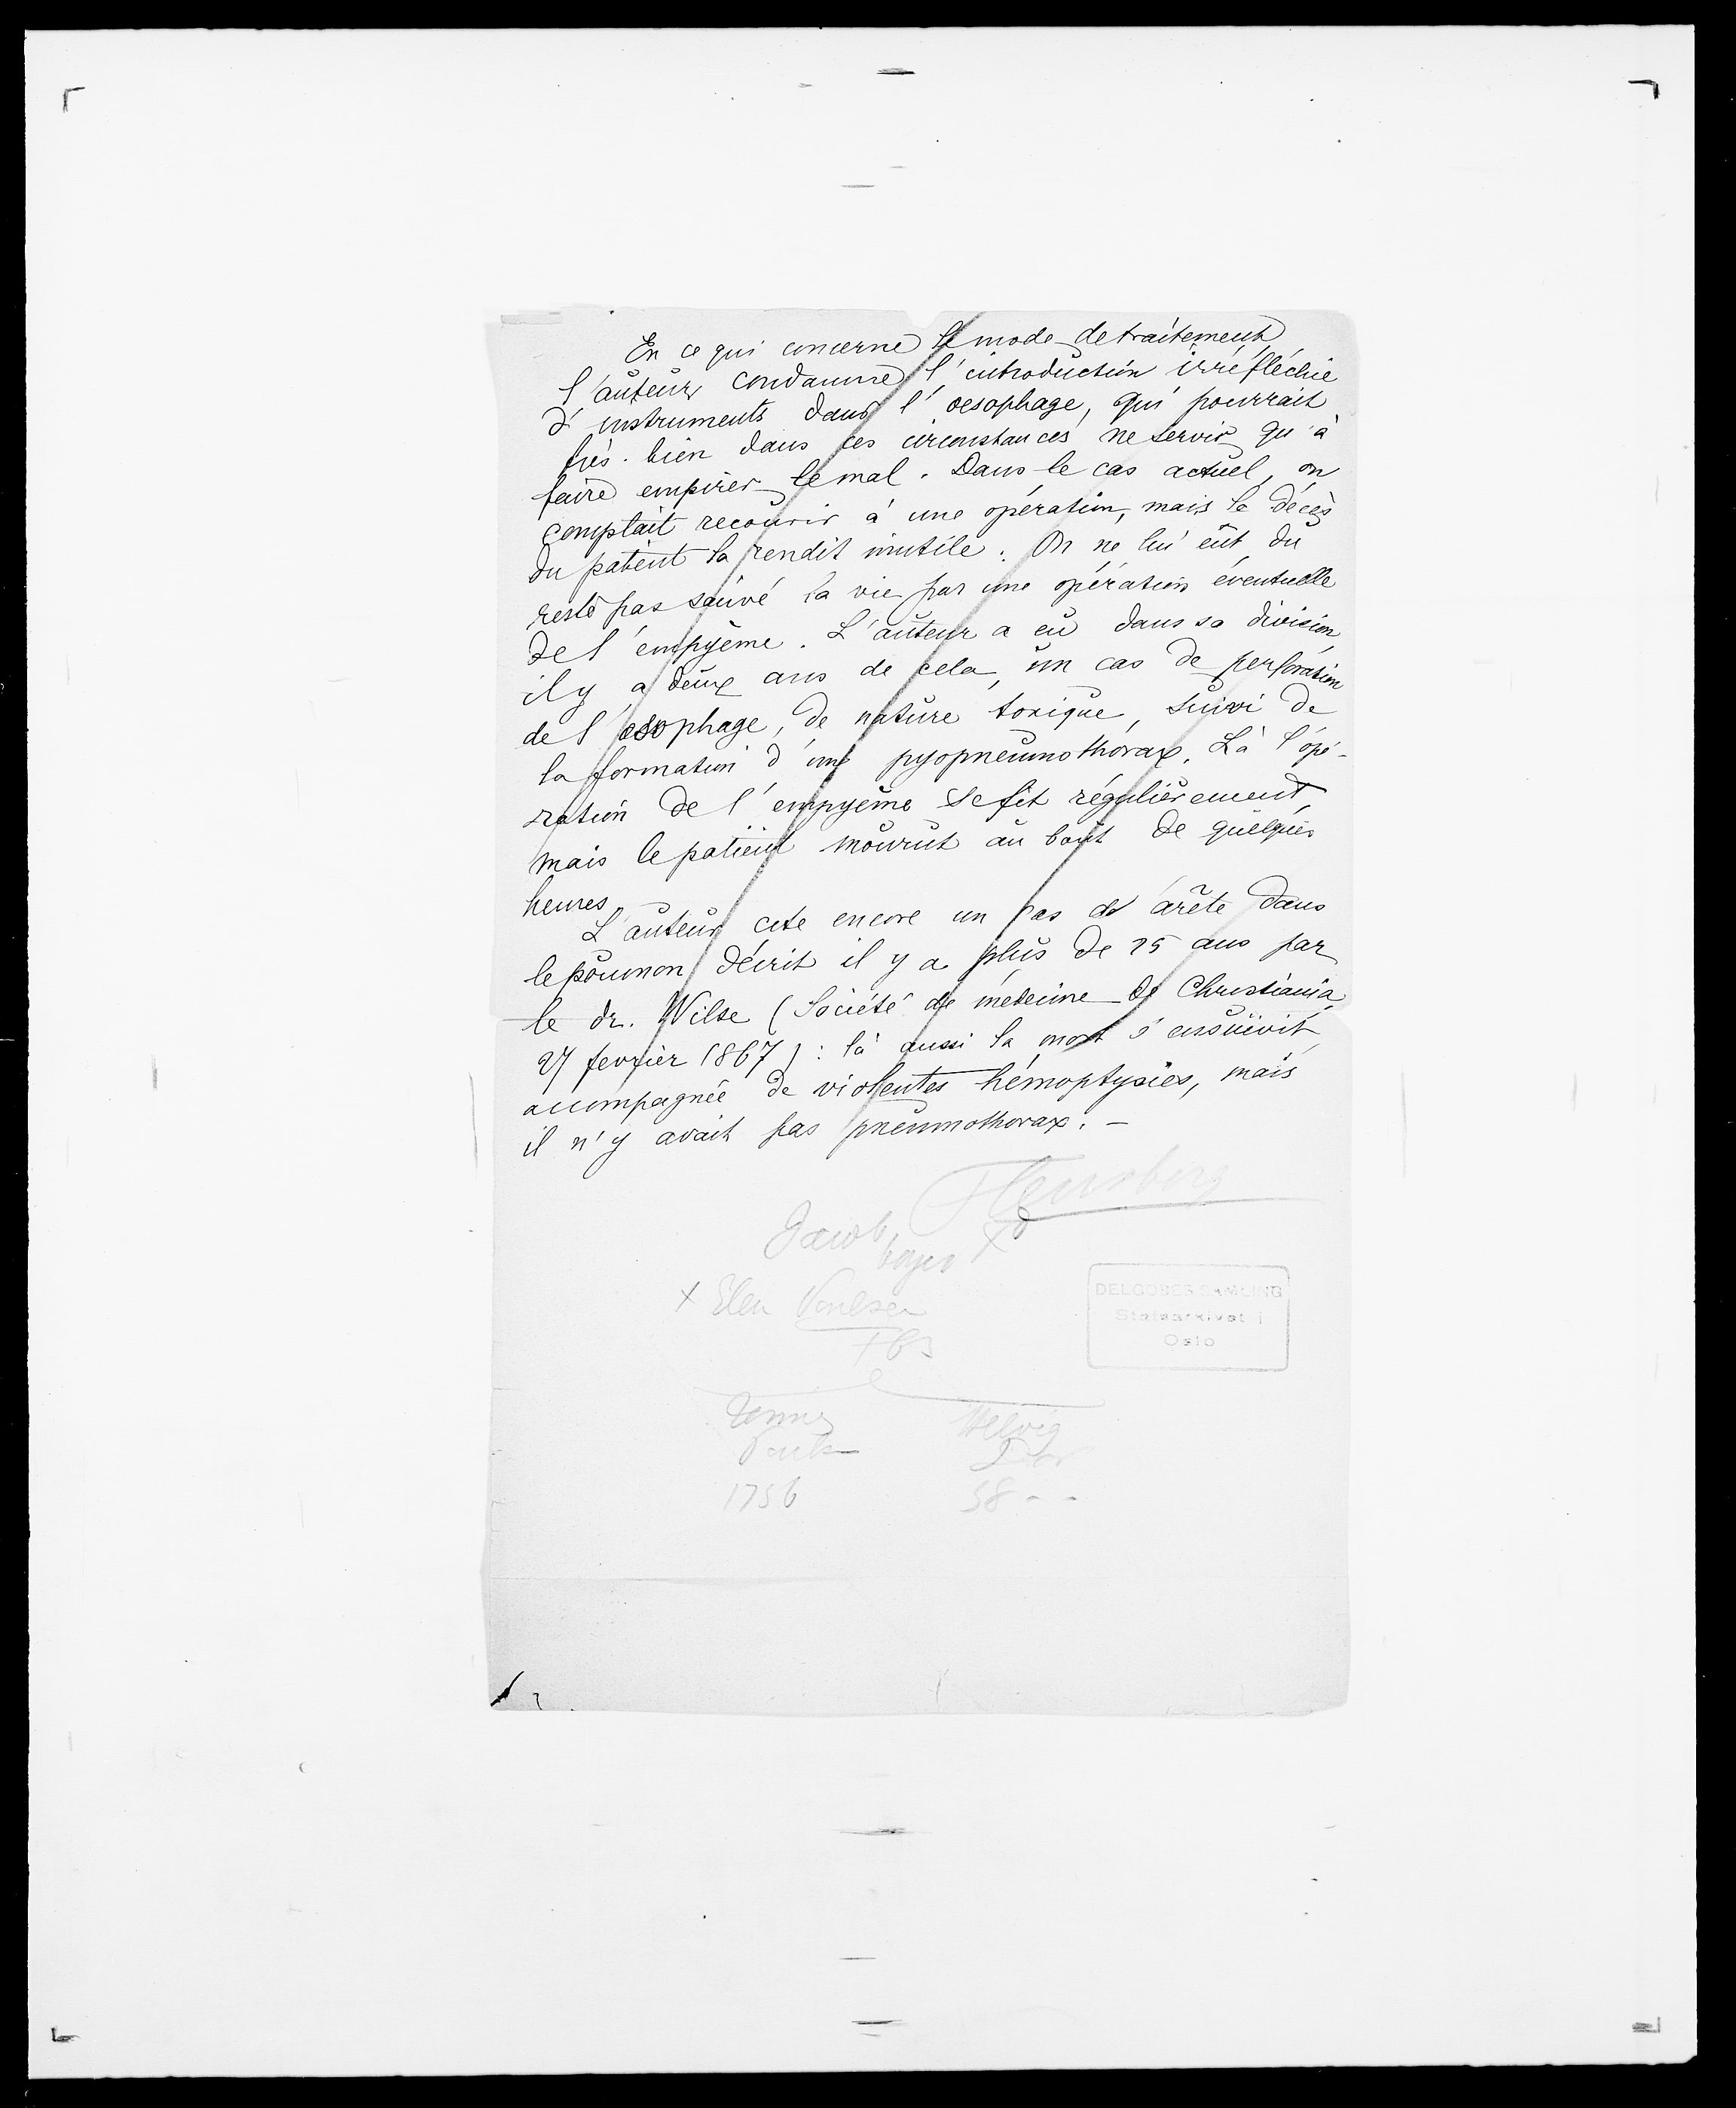 En ce qui concerne le mode de traitement,
l'auteur condamne l'introduction irréfléchie
d'instruments dans l'oesophage, qui pourrait
très-bien dans ces circonstances ne servir qu'à
faire empirer le mal. Dans le cas actuel, on
comptait recourir à une opération, mais le décès
du patient la rendit inutile. On ne lui eût du
reste pas sauvé la vie par une opération éventuelle
de l'empyème. L'auteur a eu dans sa division,
il y a deux ans de cela, un cas de perforation
de l'oesophage, de nature toxique, suivi de
la formation d'un pyopneumothorax. Là l'opé-
ration de l'empyème se fit régulièrement,
mais le patient mourut au bout de quelques
heures.
L'auteur cite encore un cas d'arête dans
le poumon décrit il y a plus de 25 ans par
le dr. Wilse (Société de médecine de Christiania,
27 fevrier 1867): là aussi la mort s'ensuivit,
accompagnée de violentes hémoptysies, mais
il n'y avait pas pneumothorax. –
Flensberg
Jacob
x Elen Poulsen
DELGOBES SAMLING
Statsarkivet i
Oslo
Helvig
1756
58 - -